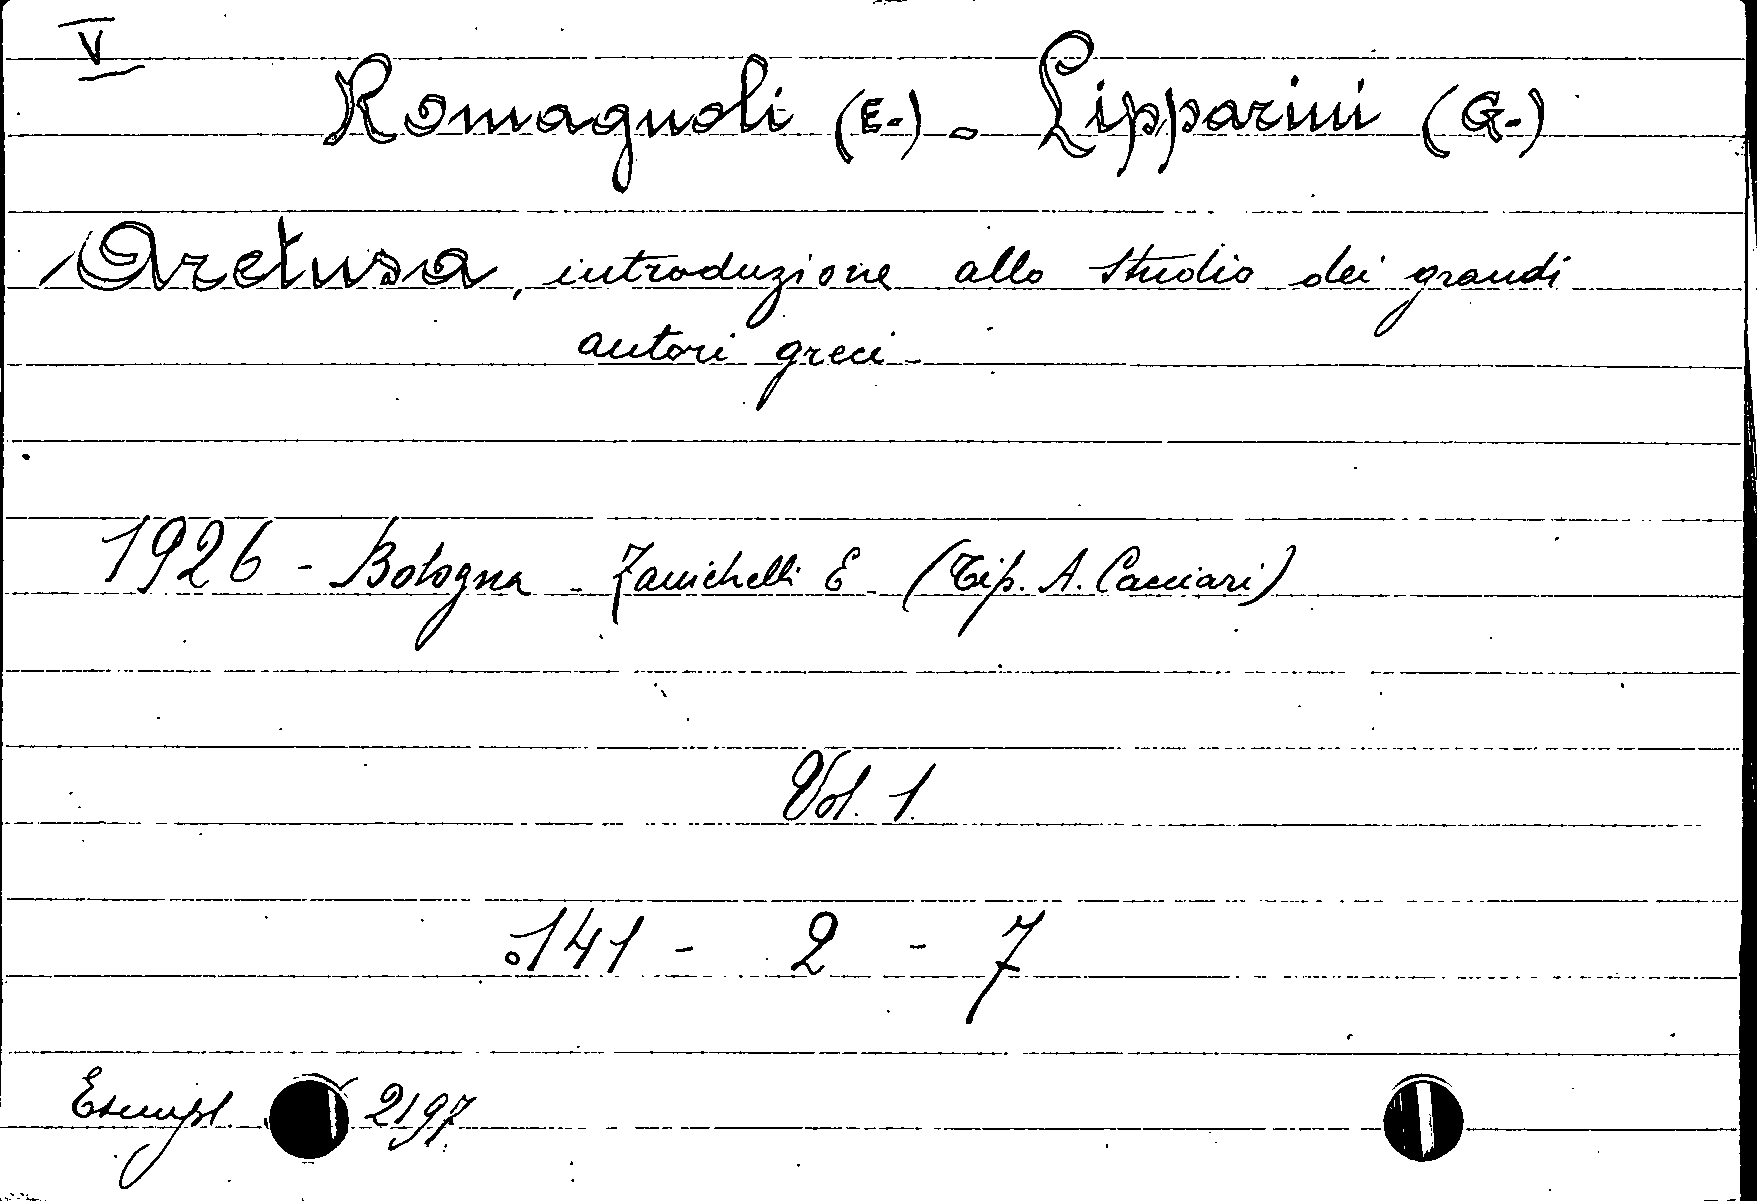 V
Romagnoli (E.) - Lipparini (G.)
Aretusa, introduzione allo studio dei grandi
autori greci -
1926 - Bologna - Zanichelli E (Tip. A. Cacciari)
Vol. 1.
141 - 2 - 7
Esempl. 2197